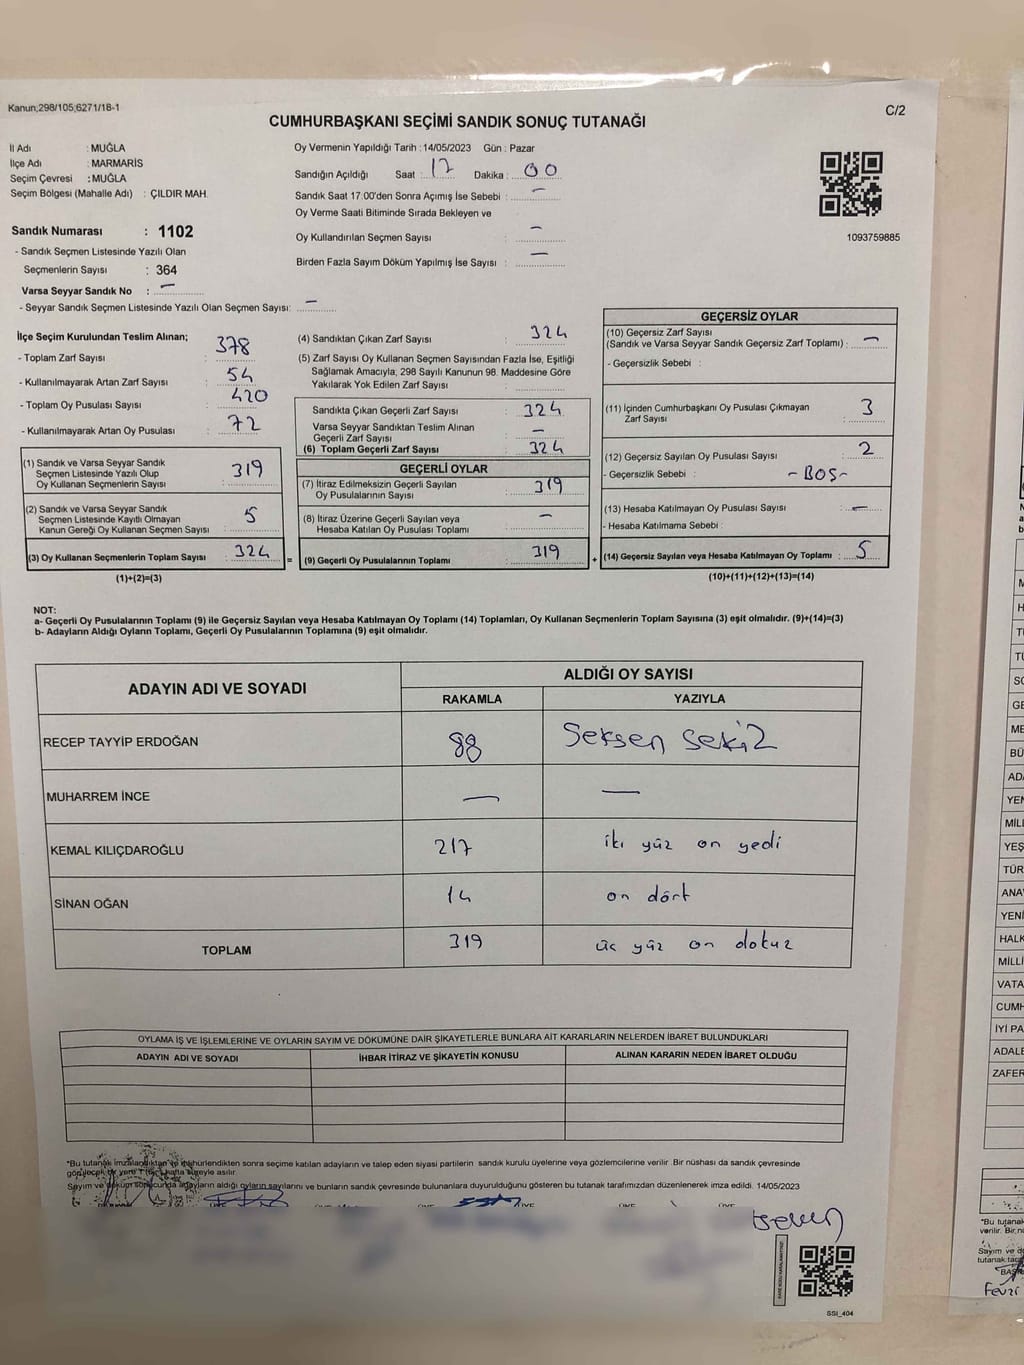 Kanun;298/105;6271/18-1
C/2
CUMHURBAŞKANI SEÇİMİ SANDIK SONUÇ TUTANAĞI
İl Adı : MUĞLA
İlçe Adı : MARMARİS
Seçim Çevresi : MUĞLA
Seçim Bölgesi (Mahalle Adı) : ÇILDIR MAH.
Oy Vermenin Yapıldığı Tarih :14/05/2023 Gün : Pazar
Sandığın Açıldığı Saat : 17 Dakika : 00
Sandık Saat 17:00'den Sonra Açımış İse Sebebi : —
Oy Verme Saati Bitiminde Sırada Bekleyen ve
Oy Kullandırılan Seçmen Sayısı : —
Birden Fazla Sayım Döküm Yapılmış İse Sayısı : —
1093759885
Sandık Numarası : 1102
- Sandık Seçmen Listesinde Yazılı Olan
Seçmenlerin Sayısı : 364
Varsa Seyyar Sandık No : —
- Seyyar Sandık Seçmen Listesinde Yazılı Olan Seçmen Sayısı: —
İlçe Seçim Kurulundan Teslim Alınan;
- Toplam Zarf Sayısı : 378
- Kullanılmayarak Artan Zarf Sayısı : 54
- Toplam Oy Pusulası Sayısı : 420
- Kullanılmayarak Artan Oy Pusulası : 72
(1) Sandık ve Varsa Seyyar Sandık
Seçmen Listesinde Yazılı Olup
Oy Kullanan Seçmenlerin Sayısı : 319
(2) Sandık ve Varsa Seyyar Sandık
Seçmen Listesinde Kayıtlı Olmayan
Kanun Gereği Oy Kullanan Seçmen Sayısı : 5
(3) Oy Kullanan Seçmenlerin Toplam Sayısı : 324
(1)+(2)=(3)
(4) Sandıktan Çıkan Zarf Sayısı : 324
(5) Zarf Sayısı Oy Kullanan Seçmen Sayısından Fazla İse, Eşitliği
Sağlamak Amacıyla; 298 Sayılı Kanunun 98. Maddesine Göre
Yakılarak Yok Edilen Zarf Sayısı :
Sandıkta Çıkan Geçerli Zarf Sayısı : 324
Varsa Seyyar Sandıktan Teslim Alınan
Geçerli Zarf Sayısı : —
(6) Toplam Geçerli Zarf Sayısı : 324
GEÇERLİ OYLAR
(7) İtiraz Edilmeksizin Geçerli Sayılan
Oy Pusulalarının Sayısı : 319
(8) İtiraz Üzerine Geçerli Sayılan veya
Hesaba Katılan Oy Pusulası Toplamı : —
= (9) Geçerli Oy Pusulalarının Toplamı : 319
GEÇERSİZ OYLAR
(10) Geçersiz Zarf Sayısı
(Sandık ve Varsa Seyyar Sandık Geçersiz Zarf Toplamı) : —
- Geçersizlik Sebebi :
(11) İçinden Cumhurbaşkanı Oy Pusulası Çıkmayan
Zarf Sayısı : 3
(12) Geçersiz Sayılan Oy Pusulası Sayısı : 2
- Geçersizlik Sebebi : - BOŞ -
(13) Hesaba Katılmayan Oy Pusulası Sayısı : —
- Hesaba Katılmama Sebebi :
+ (14) Geçersiz Sayılan veya Hesaba Katılmayan Oy Toplamı : 5
(10)+(11)+(12)+(13)=(14)
NOT:
a- Geçerli Oy Pusulalarının Toplamı (9) ile Geçersiz Sayılan veya Hesaba Katılmayan Oy Toplamı (14) Toplamları, Oy Kullanan Seçmenlerin Toplam Sayısına (3) eşit olmalıdır. (9)+(14)=(3)
b- Adayların Aldığı Oyların Toplamı, Geçerli Oy Pusulalarının Toplamına (9) eşit olmalıdır.
ADAYIN ADI VE SOYADI ALDIĞI OY SAYISI
RAKAMLA YAZIYLA
RECEP TAYYİP ERDOĞAN 88 Seksen Sekiz
MUHARREM İNCE — —
KEMAL KILIÇDAROĞLU 217 iki yüz on yedi
SİNAN OĞAN 14 on dört
TOPLAM 319 üç yüz on dokuz
OYLAMA İŞ VE İŞLEMLERİNE VE OYLARIN SAYIM VE DÖKÜMÜNE DAİR ŞİKAYETLERLE BUNLARA AİT KARARLARIN NELERDEN İBARET BULUNDUKLARI
ADAYIN ADI VE SOYADI İHBAR İTİRAZ VE ŞİKAYETİN KONUSU ALINAN KARARIN NEDEN İBARET OLDUĞU
*Bu tutanak imzalandıktan ve mühürlendikten sonra seçime katılan adayların ve talep eden siyasi partilerin sandık kurulu üyelerine veya gözlemcilerine verilir .Bir nüshası da sandık çevresinde
görülecek bir yere 1 (bir) hafta süreyle asılır.
Sayım ve döküm sonucunda adayların aldığı oyların sayılarını ve bunların sandık çevresinde bulunanlara duyurulduğunu gösteren bu tutanak tarafımızdan düzenlenerek imza edildi. 14/05/2023
SSİ_404
TÜR
ANA
YENİ
HALK
MİLLİ
VATA
CUMH
İYİ PA
ADALE
ZAFER
*Bu tutana
verilir. Bir n
Sayım ve d
Fevzi